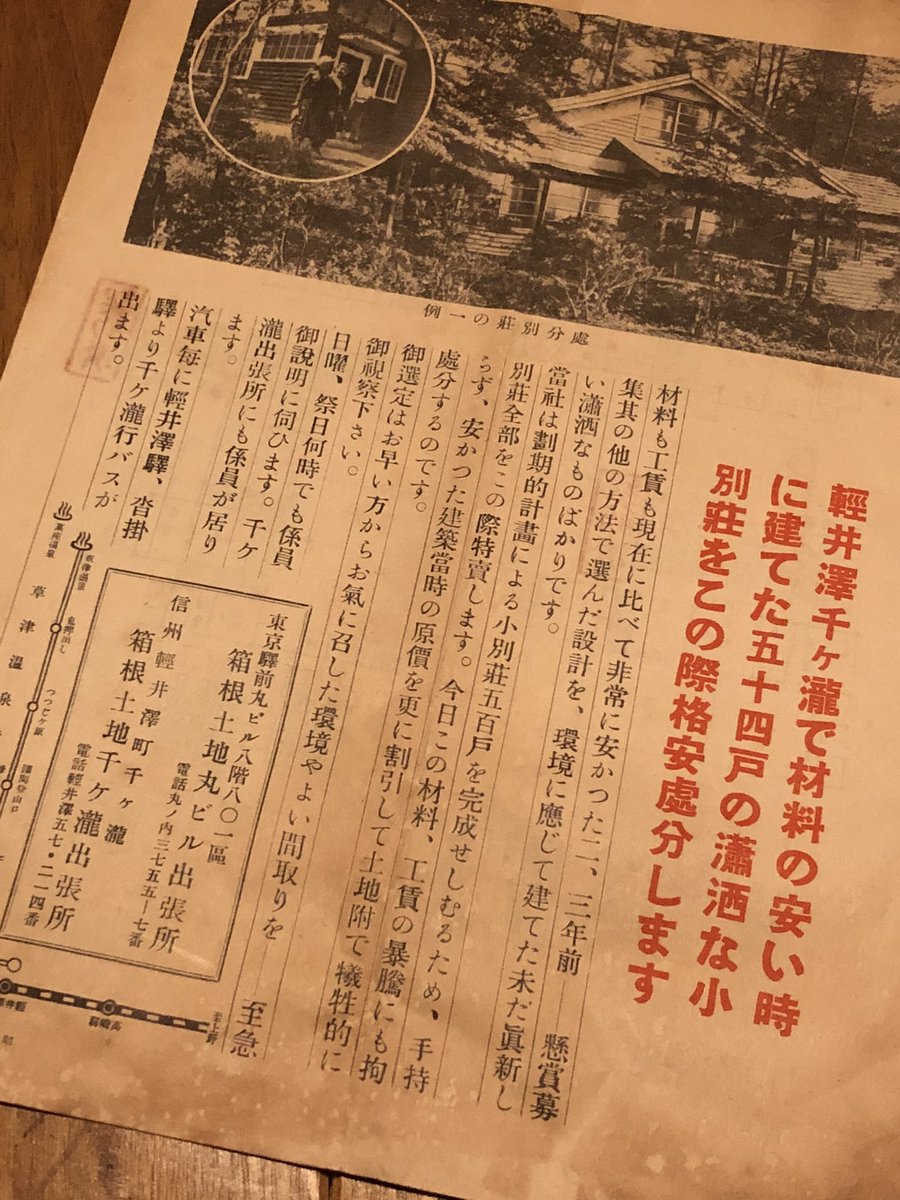 輕井澤千ヶ瀧で材料の安い時
に建てた五十四戸の瀟洒な小
別莊をこの際格安處分します
處分別莊の一例
材料も工賃も現在に比べて非常に安かつた二、三年前 懸賞募
集其の他の方法で選んだ設計を、環境に應じて建てた未だ眞新し
い瀟洒なものばかりです。
當社は劃期的計畫による小別莊五百戸を完成せしむるため、手持
別莊全部をこの際特賣します。今日この材料、工賃の暴騰にも拘
らず、安かつた建築當時の原價を更に割引して土地附で犠牲的に
處分するのです。
御選定はお早い方からお氣に召した環境やよい間取りを 至急
御視察下さい。
日曜、祭日何時でも係員
御說明に伺ひます。千ケ
瀧出張所にも係員が居り
ます。
汽車每に輕井澤驛、沓掛
驛より千ケ瀧行バスが
出ます。
東京驛前丸ビル八階八〇一區
箱根土地丸ビル出張所
電話丸ノ内三七五五ー七番
信州輕井澤町千ヶ瀧
箱根土地千ケ瀧出張所
電話輕井澤五七・二一四番
草津溫泉
鬼押出し
つつじヶ原
淺間登山口
草津溫泉
高崎
至上野